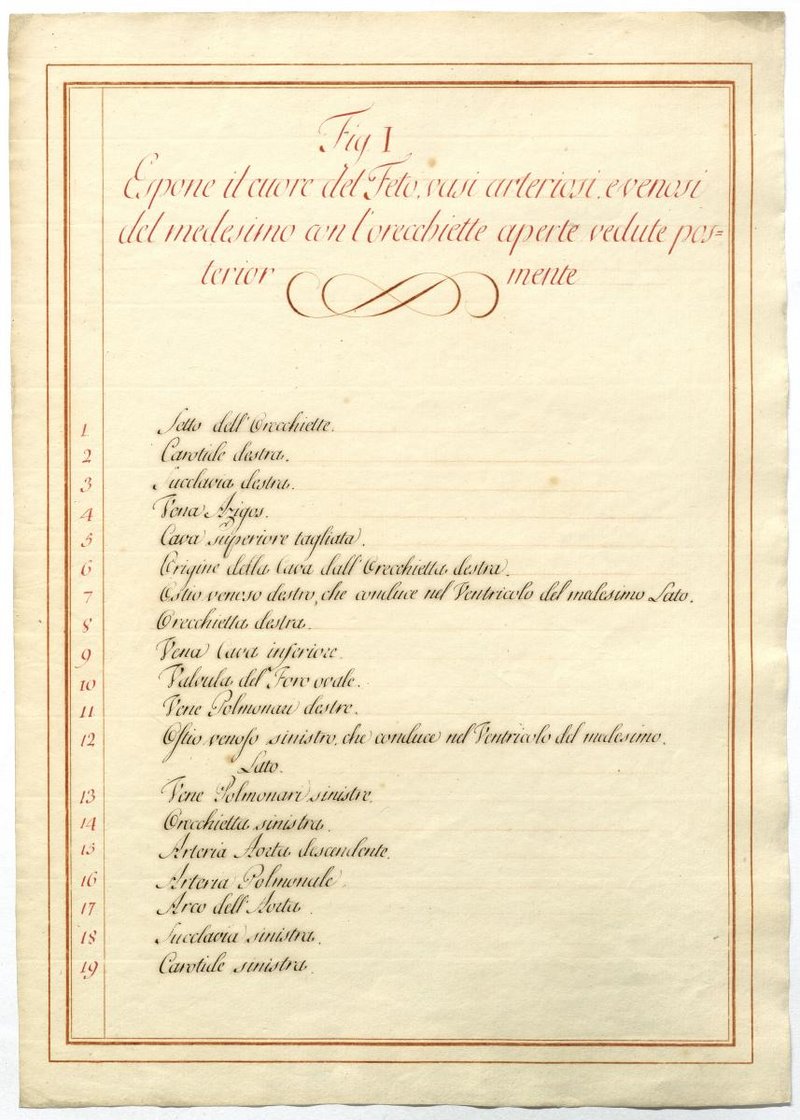 Fig I
Espone il cuore del Feto, vasi arteriosi, e venosi
del medesimo con l'orecchiette aperte vedute pos=
terior mente
1 Setto dell'Orecchiette.
2 Carotide destra.
3 Succlavia destra.
4 Vena Azigos.
5 Cava superiore tagliata.
6 Origine della Cava dall'Orecchietta destra.
7 Ostio venoso destro, che conduce nel Ventricolo del medesimo Lato.
8 Orecchietta destra.
9 Vena Cava inferiore.
10 Valvula del Foro ovale.
11 Vene Polmonari destre.
12 Ostio venoso sinistro, che conduce nel Ventricolo del medesimo.
Lato.
13 Vene Polmonari sinistre.
14 Orecchietta sinistra.
15 Arteria Aorta descendente.
16 Arteria Polmonale.
17 Arco dell'Aorta.
18 Succlavia sinistra.
19 Carotide sinistra.